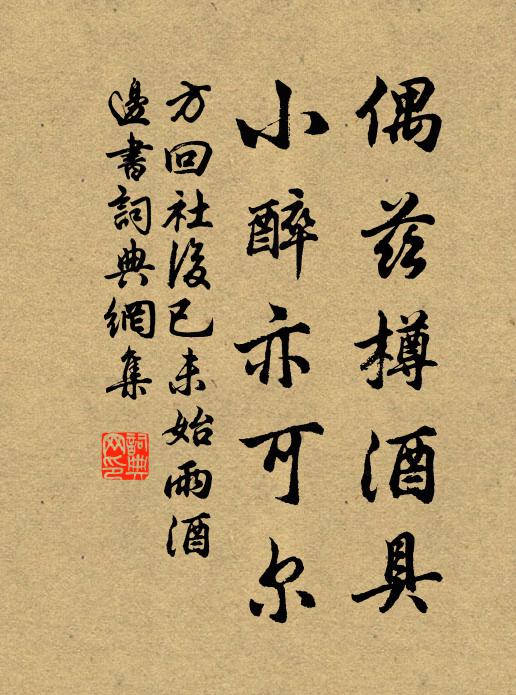 偶茲樽酒具
小醉亦可尔
方回社後已未始雨酒
邊書詞典網集
詞典网印